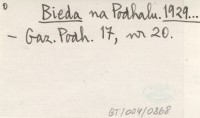 Bieda na Podhalu. 1929...
- Gaz. Podh. 17, nr 20.
BT/004/0868